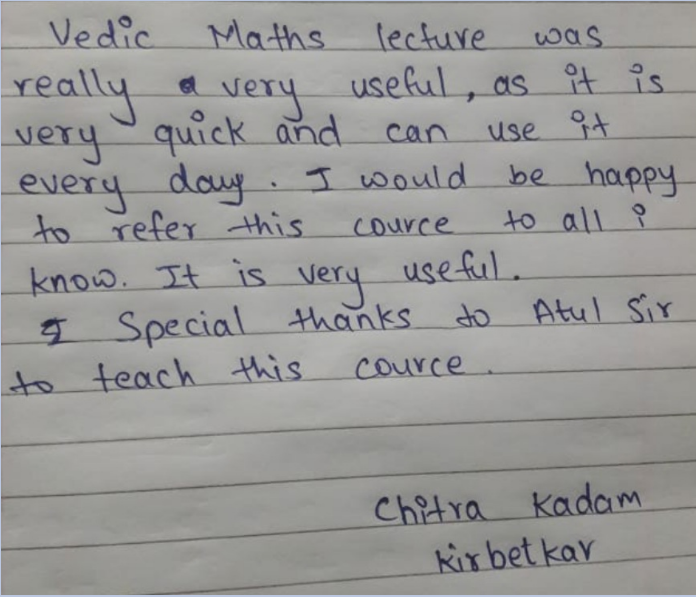 Vedic Maths lecture was
really a very useful, as it is
very quick and can use it
every day. I would be happy
to refer this cource to all i
know. It is very useful.
Special thanks to Atul Sir
to teach this cource.
Chitra Kadam
Kirbetkar